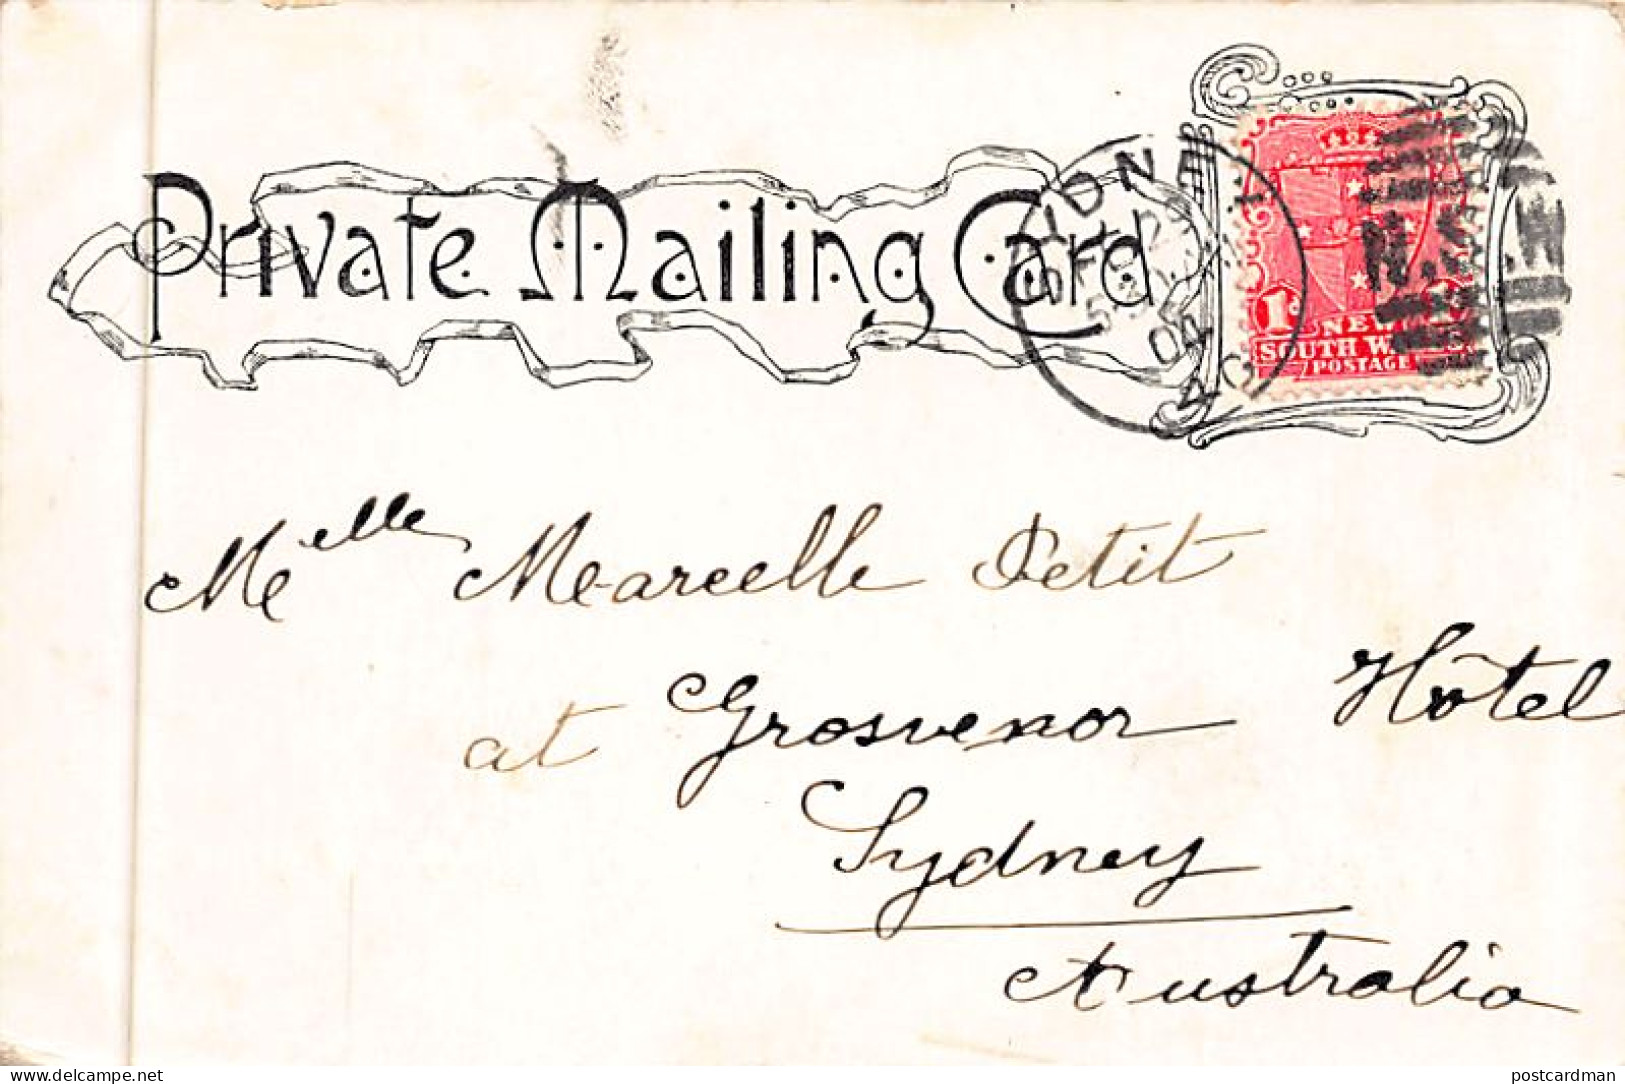 Private Mailing Card
1d
NEW
SOUTH W
POSTAGE
N.S.W
Melle Marcelle Petit
at Grosvenor Hôtel
Sydney
Australia
Delcampe.net
postcardman